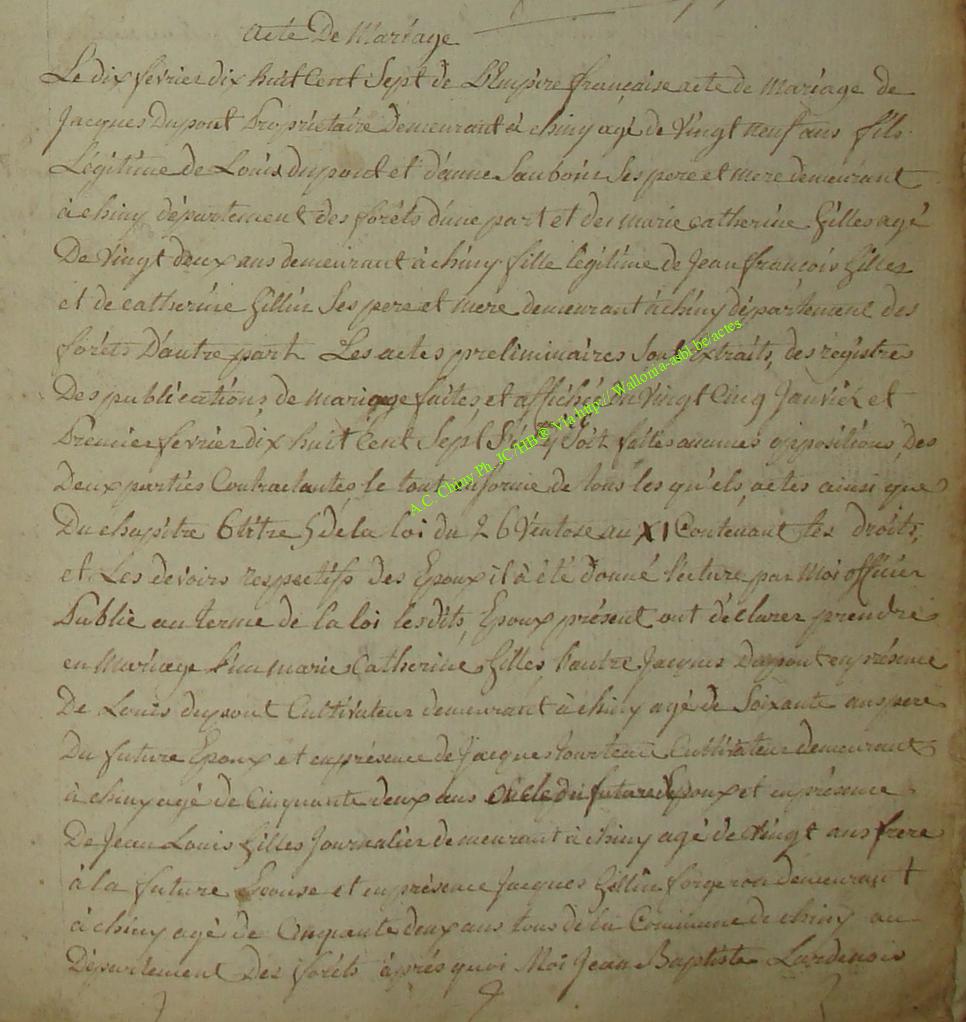 Acte De Mariage
Le dix fevrier dix huit Cent Sept de L'Empire française acte de Mariage de
Jacques Dupont Propriétaire Demeurant à chiny agé de Vingt neuf ans fils
Légitime de Louis dupont et d'anne Ses pere et mere demeurant
à chiny département des forêts d'une part et de marie catherine Gilles agé
De Vingt deux ans demeurant à chiny fille légitime de Jean françois Gilles
et de catherine Gillin Ses pere et mere demeurant à chiny département des
forêts D'autre part Les actes preliminaires Sont extraits, des registres
Des publications de mariage faites, et affiché Vingt Cinq Janvier et
Premier fevrier dix huit Cent Sept Soit faites aucunes oppositions, Des
Deux parties Contractantes, le tout en forme de tous les qu'els, actes ainsi que
Du chapitre 6 titre 5 de la loi du 26 Ventose an XI Contenant les droits,
et Les devoirs respectifs Des Epoux il à été donné lecture par Moi officier
Public au terme de la loi lesdits, Epoux présent ont déclarer prendre
en Mariage L'un marie Catherine Gilles, L'autre Jacques Dupont en présence
De Louis dupont Cultivateur demeurant à chiny agé de Soixante ans pere
Du future Epoux et en présence de Jacques Cultivateur demeurant
à chiny agé de Cinquante deux ans oncle du future Epoux et en présence
De Jean Louis Gilles Journalier demeurant à chiny agé de Vingt ans frere
à la future Epouse et en présence Jacques Gillin forgeron demeurant
à chiny agé de Cinquante deux ans tous de la Commune de chiny au
Département Des forêts après quoi Moi Jean Baptiste Lardenois
A.C. Chiny Ph. JC/HB@ Via http://Wallonia-asbl.be/actes